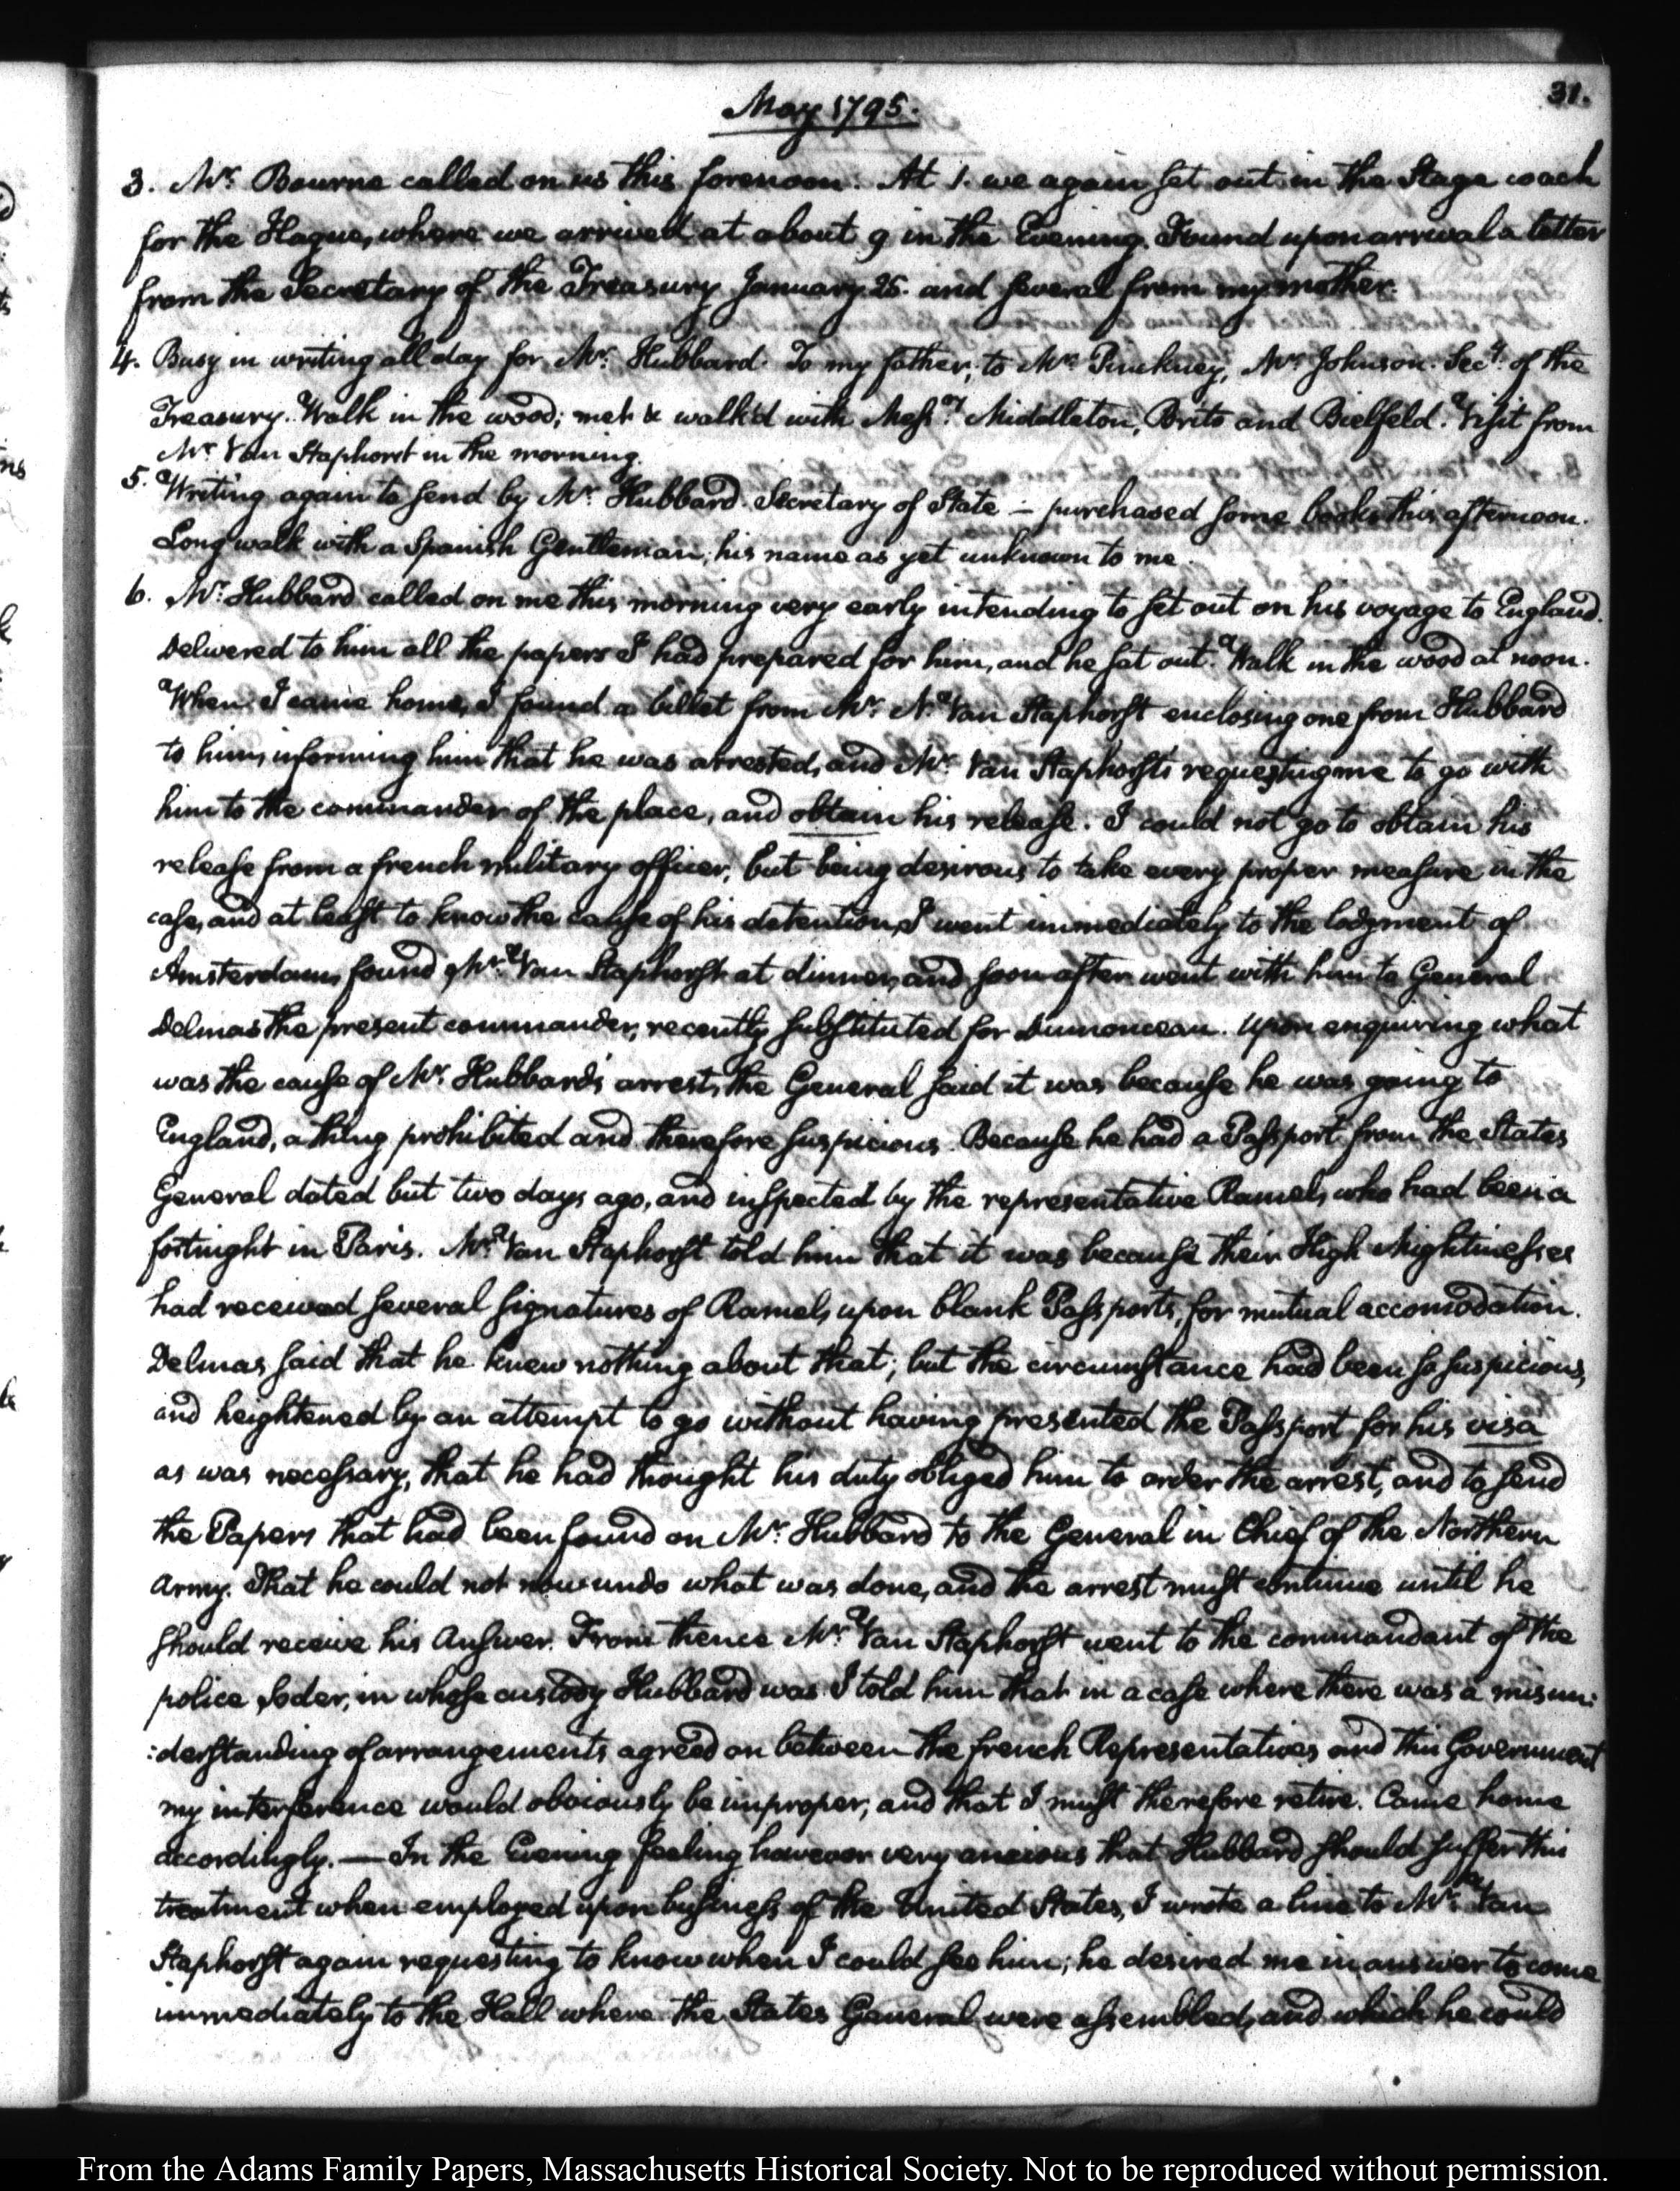 31.
May 1795.
3. Mr. Bourne called on us this forenoon. At 1. we again set out in the Stage coach
for the Hague, where we arrived at about 9 in the Evening. Found upon arrival a letter
from the Secretary of the Treasury January 26. and several from my mother.
4. Busy in writing all day for Mr. Hubbard. To my father, to Mr. Pinckney, Mr. Johnson. Secy. of the
Treasury. Walk in the wood; met & walk'd with Messrs. Middleton, Brito and Bielfeld. Visit from
Mr. Van Staphorst in the morning.
5. Writing again to send by Mr. Hubbard. Secretary of State — purchased some books this afternoon.
Long walk with a Spanish Gentleman, his name as yet unknown to me.
6. Mr. Hubbard called on me this morning very early intending to set out on his voyage to England.
Delivered to him all the papers I had prepared for him, and he sat out. Walk in the wood at noon.
When I came home, I found a billet from Mr. N. Van Staphorst enclosing one from Hubbard
to him, informing him that he was arrested, and Mr. Van Staphorst's requesting me to go with
him to the commander of the place, and obtain his release. I could not go to obtain his
release from a french military officer; but being desirous to take every proper measure in the
case, and at least to know the cause of his detention, I went immediately to the lodgment of
Amsterdam, found Mr. Van Staphorst at dinner, and soon after went with him to General
Delmas the present commander, recently substituted for Dumonceau. Upon enquiring what
was the cause of Mr. Hubbard's arrest, the General said it was because he was going to
England, a thing prohibited and therefore suspicious. Because he had a Passport from the States
General dated but two days ago, and inspected by the representative Ramel, who had been a
fortnight in Paris. Mr. Van Staphorst told him that it was because their High Mightinesses
had received several signatures of Ramel, upon blank Passports, for mutual accomodation.
Delmas said that he knew nothing about that; but the circumstance had been so suspicious,
and heightened by an attempt to go without having presented the Passport for his visa
as was necessary, that he had thought his duty obliged him to order the arrest, and to send
the Papers that had been found on Mr. Hubbard to the General in Chief of the Northern
Army. That he could not now undo what was done, and the arrest must continue until he
should receive his Answer. From thence Mr. Van Staphorst went to the commandant of the
police Soder, in whose custody Hubbard was. I told him that in a case where there was a misun:
:derstanding of arrangements agreed on between the french Representatives and this Government
my interference would obviously be improper, and that I must therefore retire. Came home
accordingly. — In the Evening feeling however very anxious that Hubbard should suffer this
treatment when employed upon business of the United States, I wrote a line to Mr. Van
Staphorst again requesting to know when I could see him; he desired me in answer to come
immediately to the Hall where the States General were assembled, and which he could
From the Adams Family Papers, Massachusetts Historical Society. Not to be reproduced without permission.